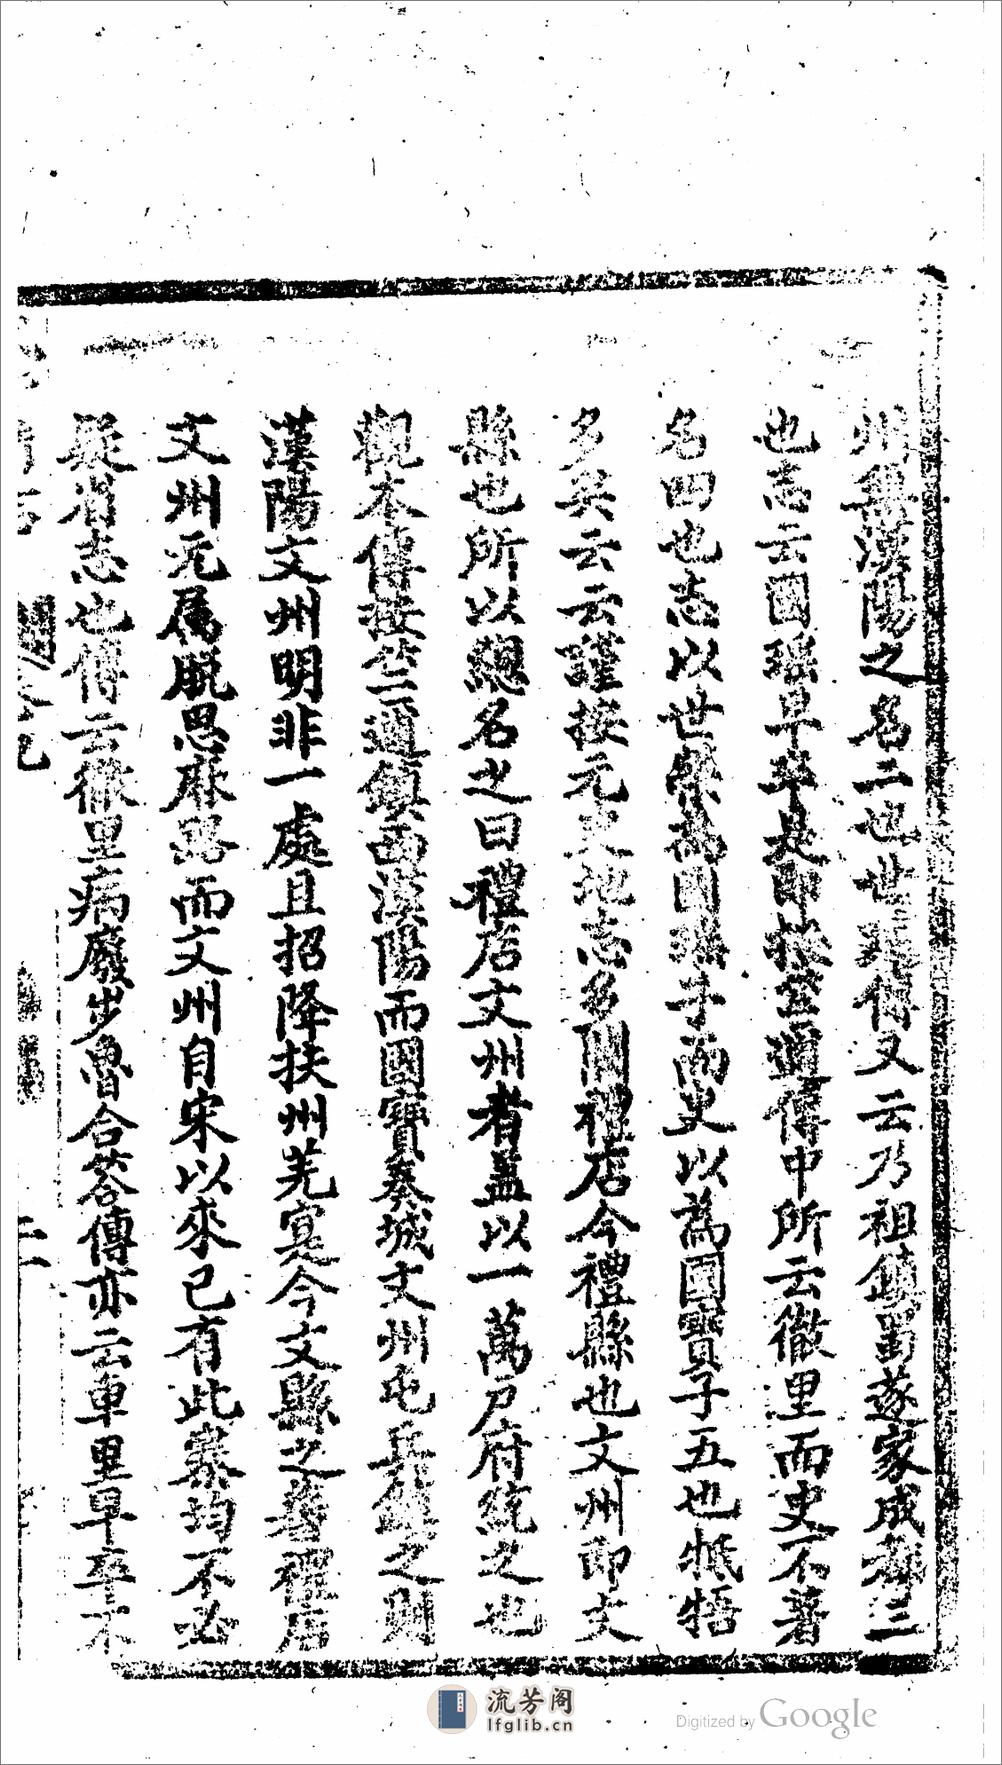 州無漢陽之名二也世 傳又云乃祖鎮蜀遂家成都三
也志云國 早卒是即按竺邇傳中所云徹里而史不著
名四也志以世榮為國 子而史以為國寶子五也牴牾
多矣云云謹按元史地志多闕禮店今禮縣也文州即文
縣也所以總名之曰禮店文州者蓋以一萬戶府統之也
觀本傳按竺邇鎮西漢陽而國寶奏城文州屯兵鎮之則
漢陽文州明非一處且招降扶州羌寔今文縣之 禮店
文州元属脱思麻路而文州自宋以來已有此寨均不必
疑省志也傳云徹里病廢步魯合荅傳亦云車里早卒未
二
流芳阁
lfglib.cn
Digitized by Google